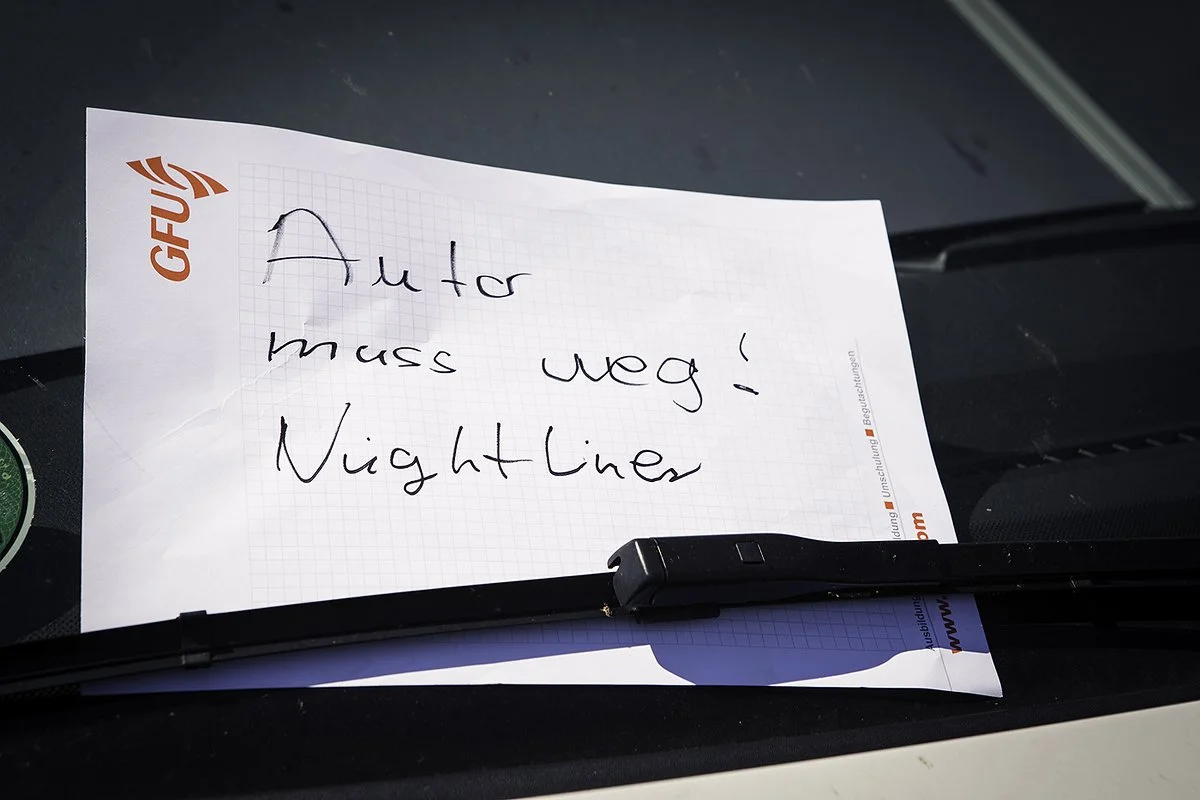 GFU
Auto
muss weg!
Nightliner
Ausbildung ldung ■ Umschulung ■ Begutachtungen
www. om